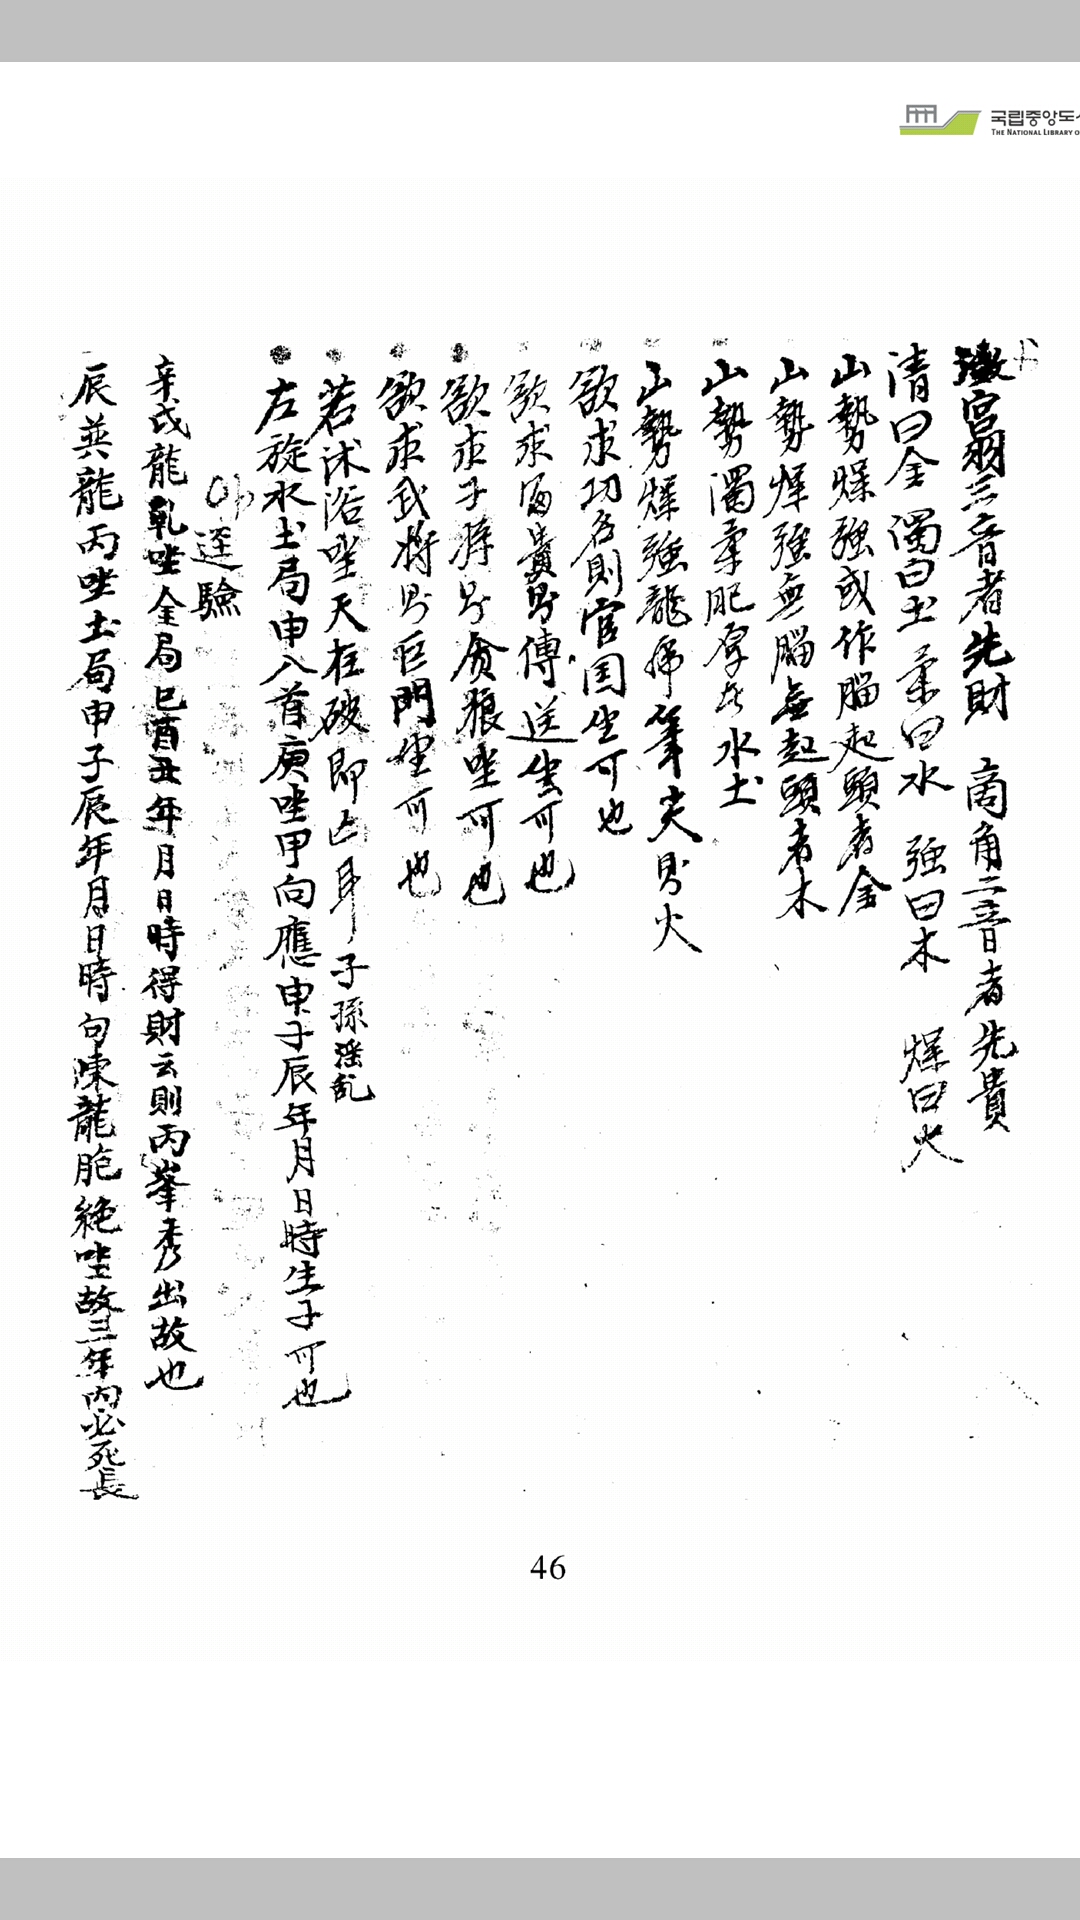 국립중앙도서
THE NATIONAL LIBRARY O
徵宮羽三音者先財 商角二音者先貴
清曰金 濁曰土 柔曰水 強曰木 燥曰火
山勢燥強或作腦起頭者金
山勢燥強無腦無起頭者木
山勢濁柔肥厚者水土
山勢燥強龍帶筆尖則火
欲求功名則官国坐可也
欲求富貴則傳送坐可也
欲求子孫則貪狼坐可也
欲求武將則巨門坐可也
若沐浴坐天柱破即凶耳 子孫淫乱
左旋水土局申入首庚坐甲向應申子辰年月日時生子可也
逕驗
辛戌龍乾坐金局巳酉丑年月日時得財云則丙峯秀出故也
辰巽龍丙坐土局申子辰年月日時句陳龍胞絶坐故三年內必死長
46